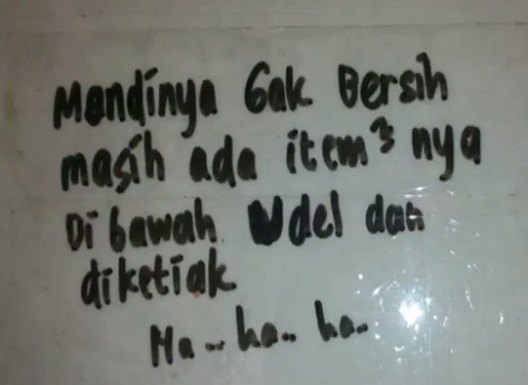 Mandinya Gak Bersih
masih ada item² nya
Di bawah Udel dan
diketiak
Ha.. ha.. ha..